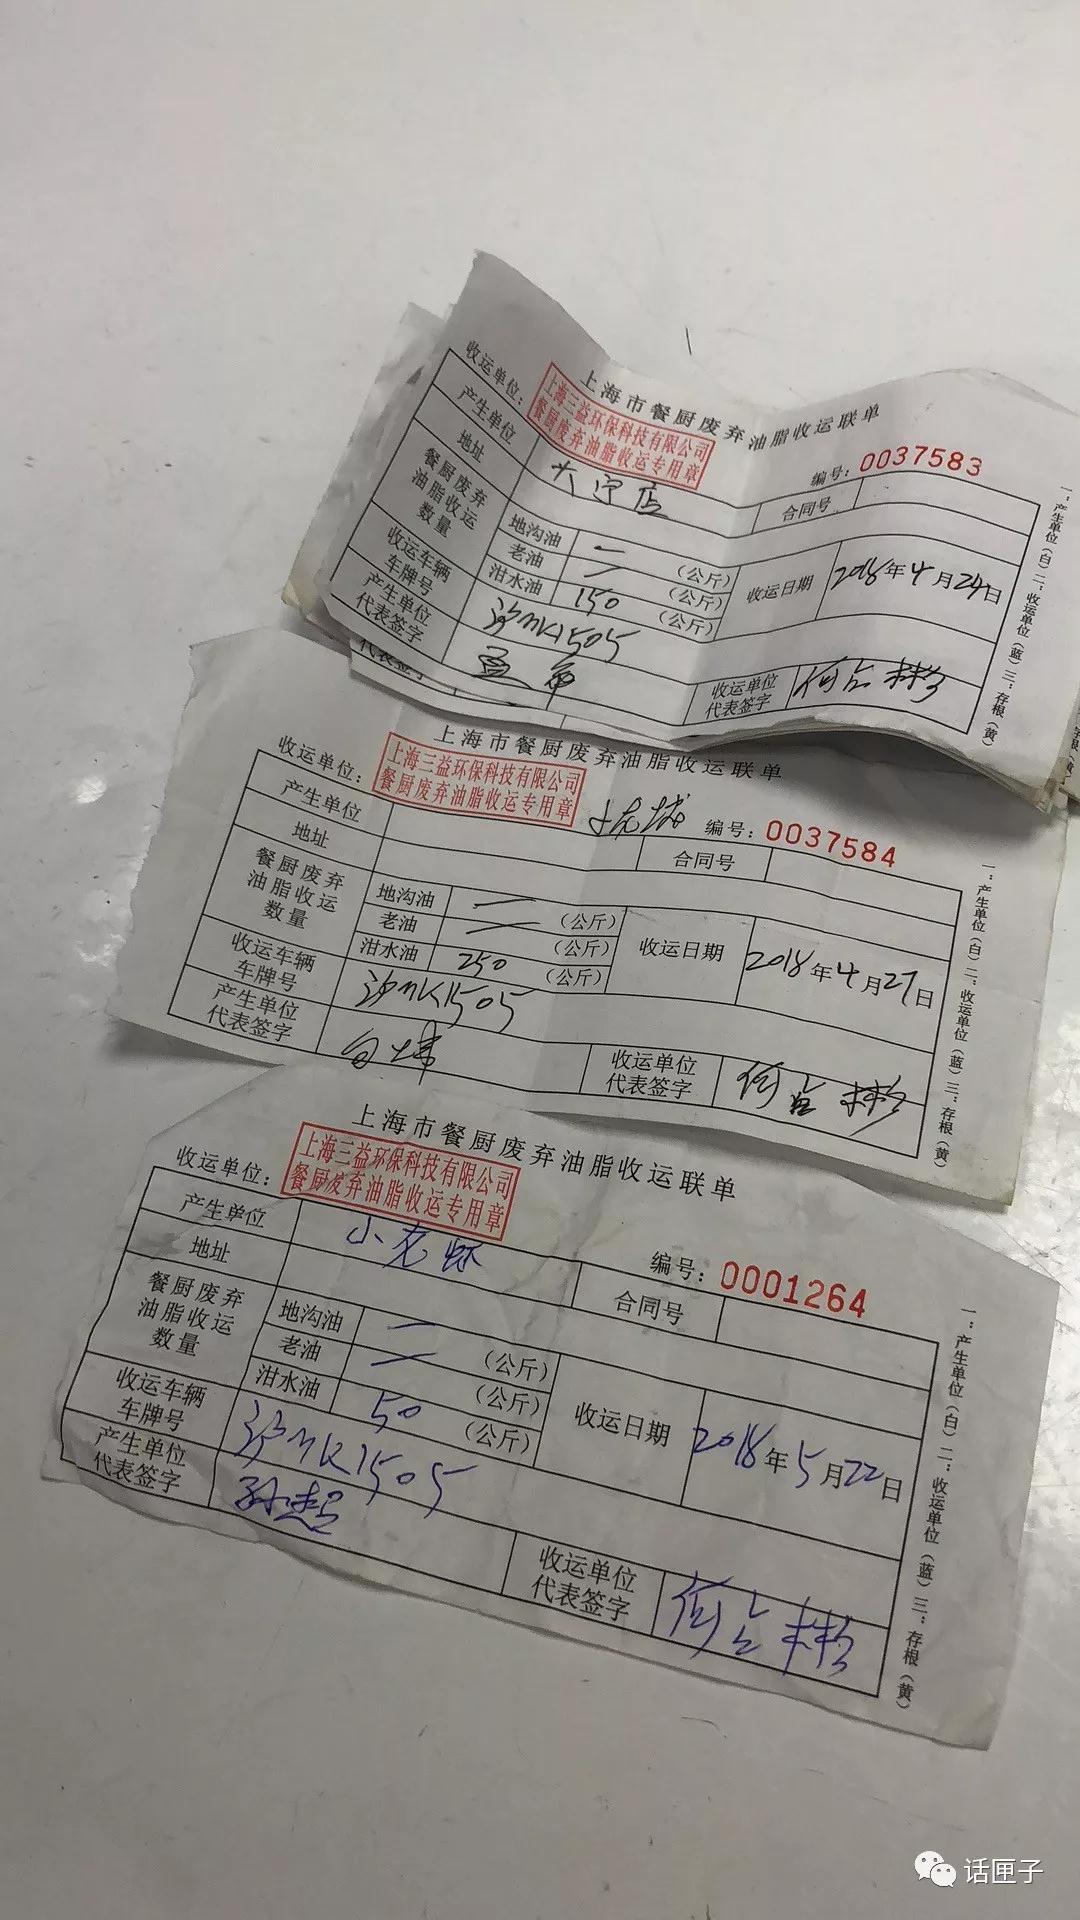 上海市餐厨废弃油脂收运联单
收运单位：
上海三益环保科技有限公司
餐厨废弃油脂收运专用章
编号：0037583
产生单位 大宁店 合同号
地址
餐厨废弃油脂收运数量
地沟油 （公斤）
老油 （公斤）
泔水油 150 （公斤）
收运日期 2018年4月24日
收运车辆车牌号 沪MK1505
产生单位代表签字
收运单位代表签字
一：产生单位（白）二：收运单位（蓝）三：存根（黄）
代表签字
上海市餐厨废弃油脂收运联单
收运单位：
上海三益环保科技有限公司
餐厨废弃油脂收运专用章
编号：0037584
产生单位 合同号
地址
餐厨废弃油脂收运数量
地沟油 （公斤）
老油 （公斤）
泔水油 250 （公斤）
收运日期 2018年4月27日
收运车辆车牌号 沪MK1505
产生单位代表签字
收运单位代表签字
一：产生单位（白）二：收运单位（蓝）三：存根（黄）
上海市餐厨废弃油脂收运联单
收运单位：
上海三益环保科技有限公司
餐厨废弃油脂收运专用章
编号：0001264
产生单位 合同号
地址
餐厨废弃油脂收运数量
地沟油 （公斤）
老油 （公斤）
泔水油 50 （公斤）
收运日期 2018年5月22日
收运车辆车牌号 沪MK1505
产生单位代表签字
收运单位代表签字
一：产生单位（白）二：收运单位（蓝）三：存根（黄）
话匣子